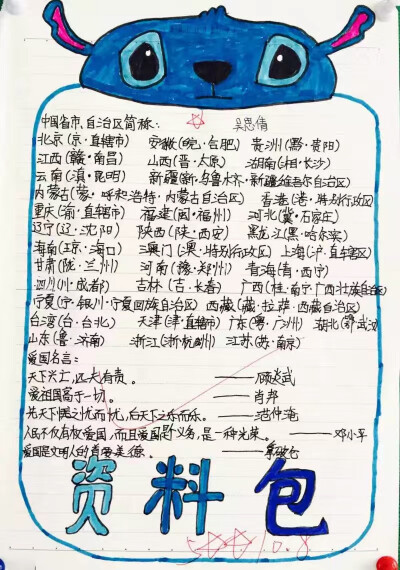 中国省市、自治区简称:
吴思倩
北京(京·直辖市) 安徽(皖·合肥) 贵洲(黔·贵阳)
江西(赣·南昌) 山西(晋·太原) 湖南(相·长沙)
云南(滇·昆明) 新疆(新·乌鲁木齐·新疆维吾尔自治区)
内蒙古(蒙·呼和浩特·内蒙古自治区) 香港(港·特别行政区)
重庆(渝·直辖市) 福建(闽·福州) 河北(冀·石家庄)
辽宁(辽·沈阳) 陕西(陕·西安) 黑龙江(黑·哈尔滨)
海南(琼·海口) 澳门(澳·特别行政区) 上海(沪·直辖区)
甘肃(陇·兰州) 河南(豫·郑州) 青海(青·西宁)
四川(川·成都) 吉林(吉·长春) 广西(桂·南宁·广西壮族自治区)
宁夏(宁·银川·宁夏回族自治区) 西藏(藏·拉萨·西藏自治区)
台湾(台·台北) 天津(津·直辖市) 广东(粤·广州) 湖北(鄂·武汉)
山东(鲁·济南) 浙江(浙·杭州) 江苏(苏·南京)
爱国名言:
天下兴亡,匹夫有责。 ——顾炎武
爱祖国高于一切。 ——肖邦
先天下之忧而忧,后天下之乐而乐。 ——范仲淹
人民不仅有权爱国,而且爱国是个义务,是一种光荣。 ——邓小平
爱国是文明人的首要美德。 ——拿破仑
资料包
10.8